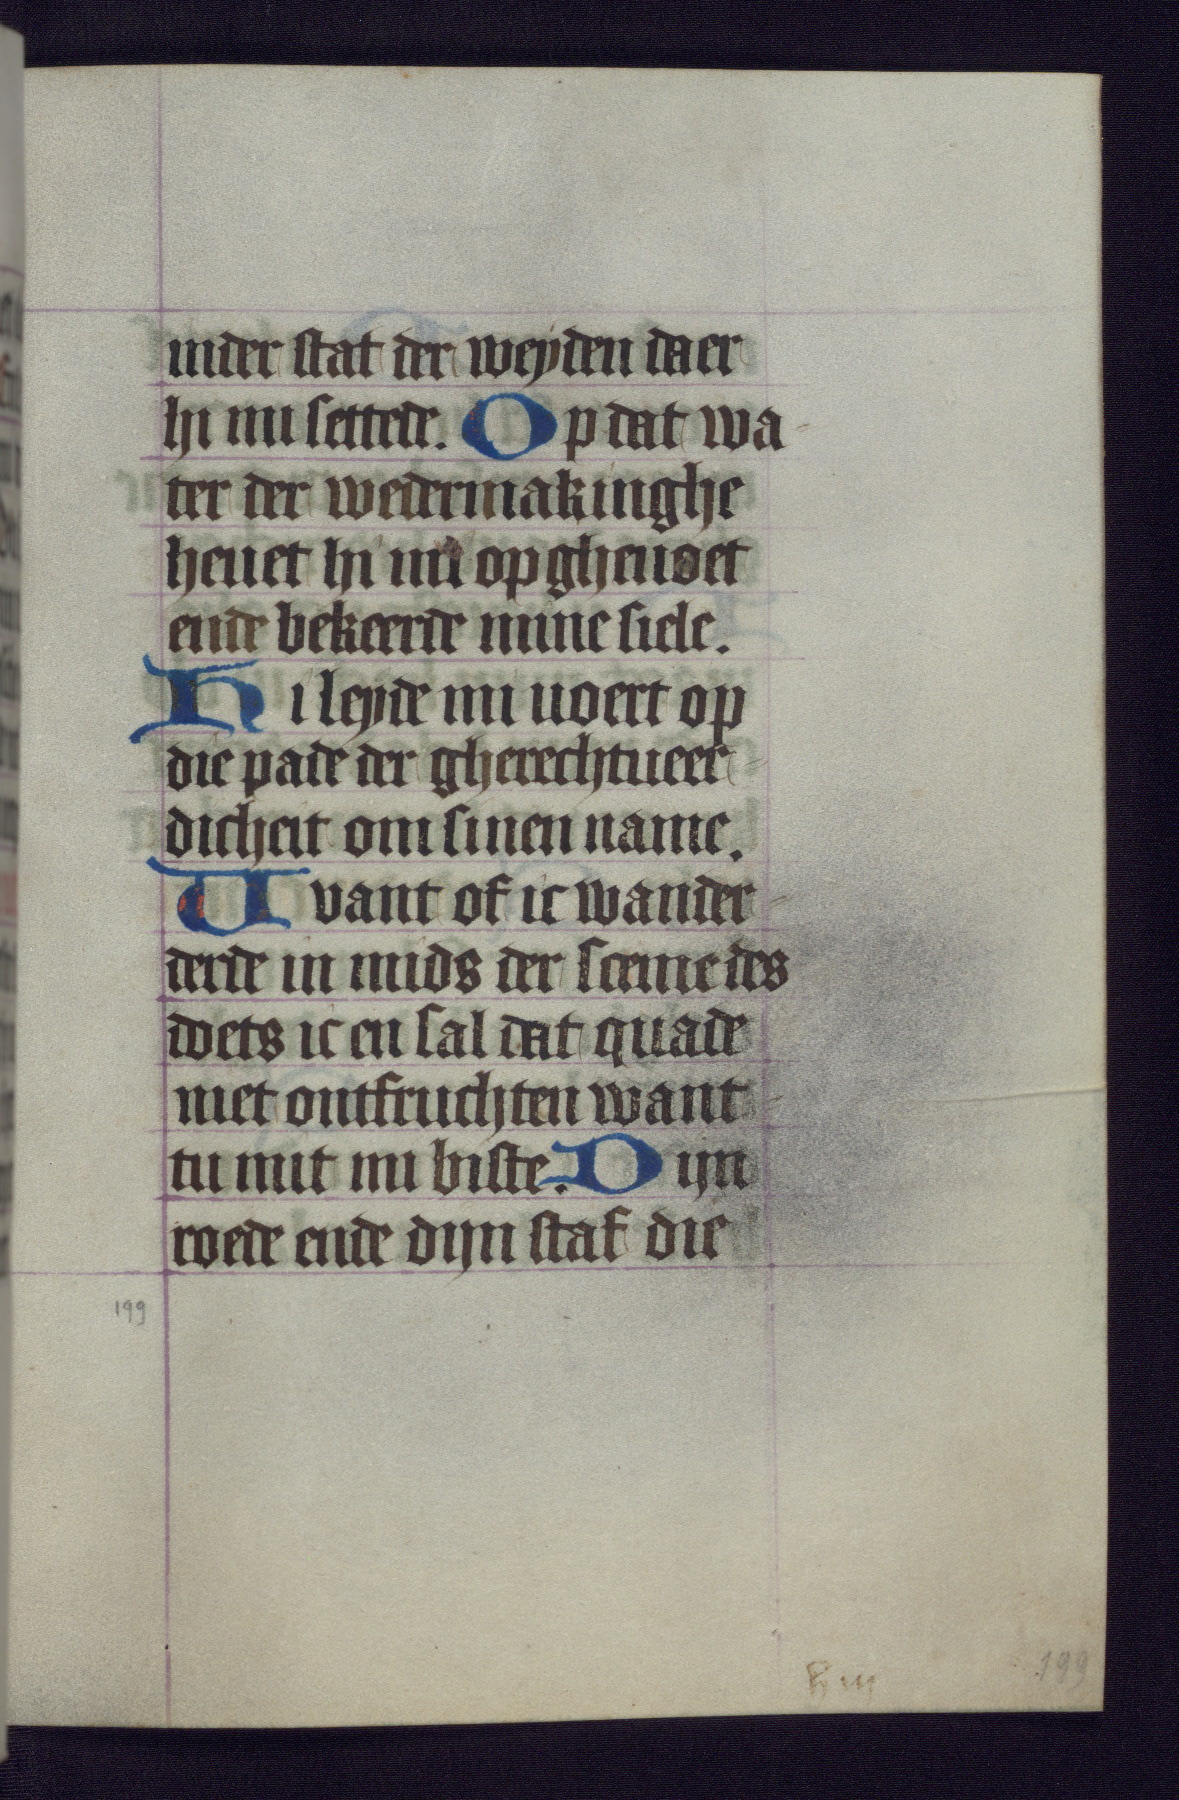 inder stat der weyden daer
hi mi settede. Op dat wa-
ter der wedermakinghe
heuet hi mi op gheuoet
ende bekeerde mine siele.
Hi leyde mi uoert op
die pade der gherechtueer-
dicheit om sinen name.
Want of ic wander-
derde in mids der sceme des
doets ic en sal dat quade
niet ontfruchten want-
tu mit mi biste. Dijn
roede ende dijn staf die
199
199